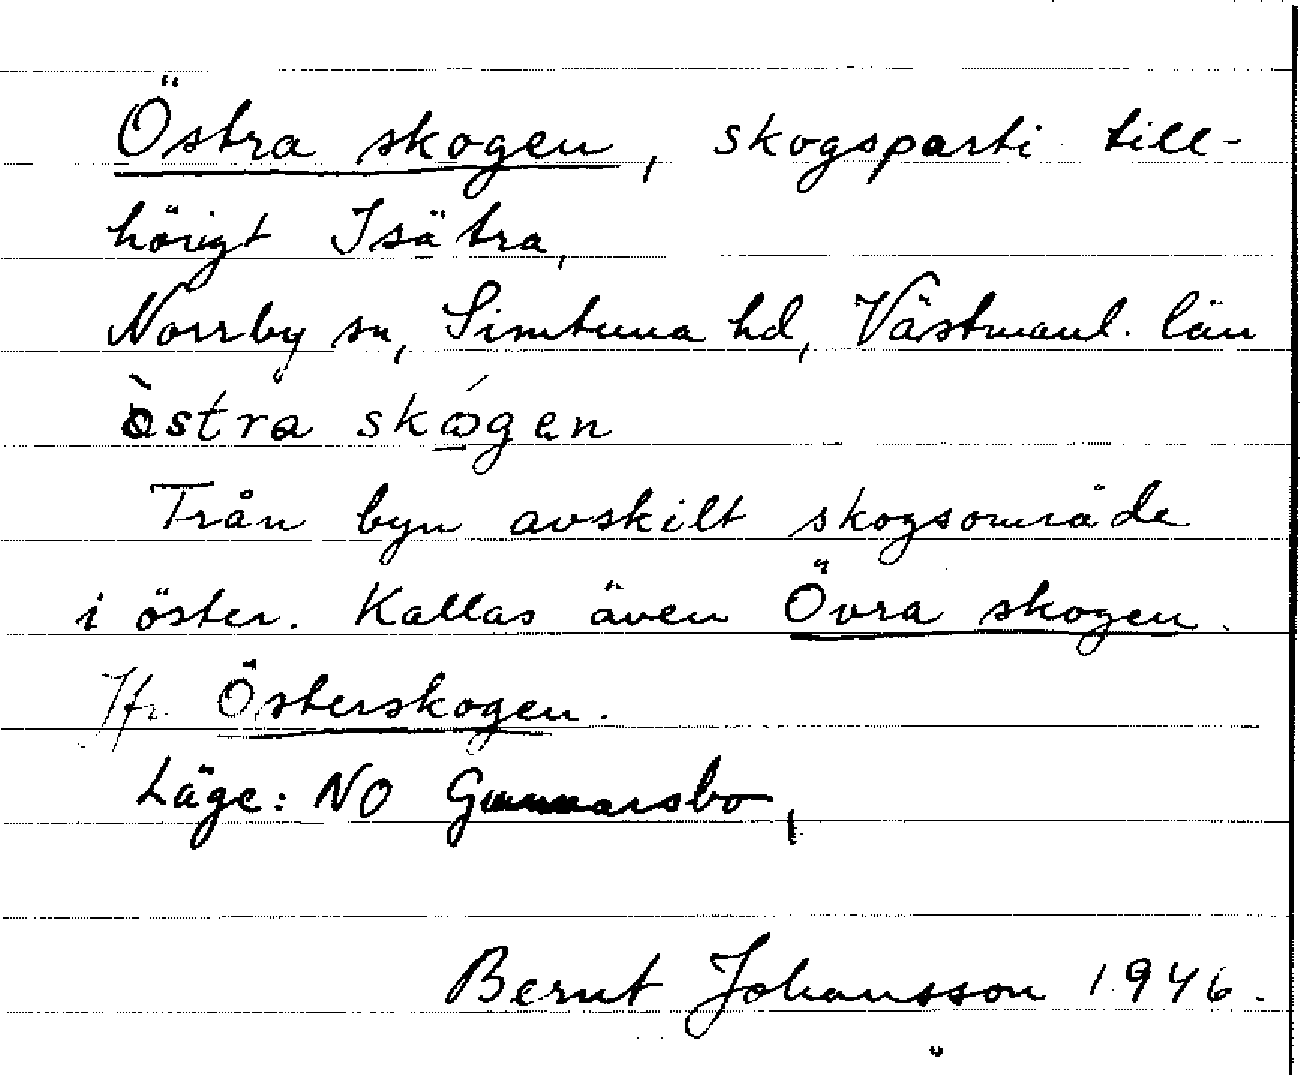 Östra skogen, skogsparti till-
hörigt Isätra,
Norrby sn, Simtuna hd, Västmanl. län
òstra skǿgen
Från byn avskilt skogsområde
i öster. Kallas även Övra skogen.
Jfr. Österskogen.
Läge: NO Gunnarsbo,
Bernt Johansson 1946.